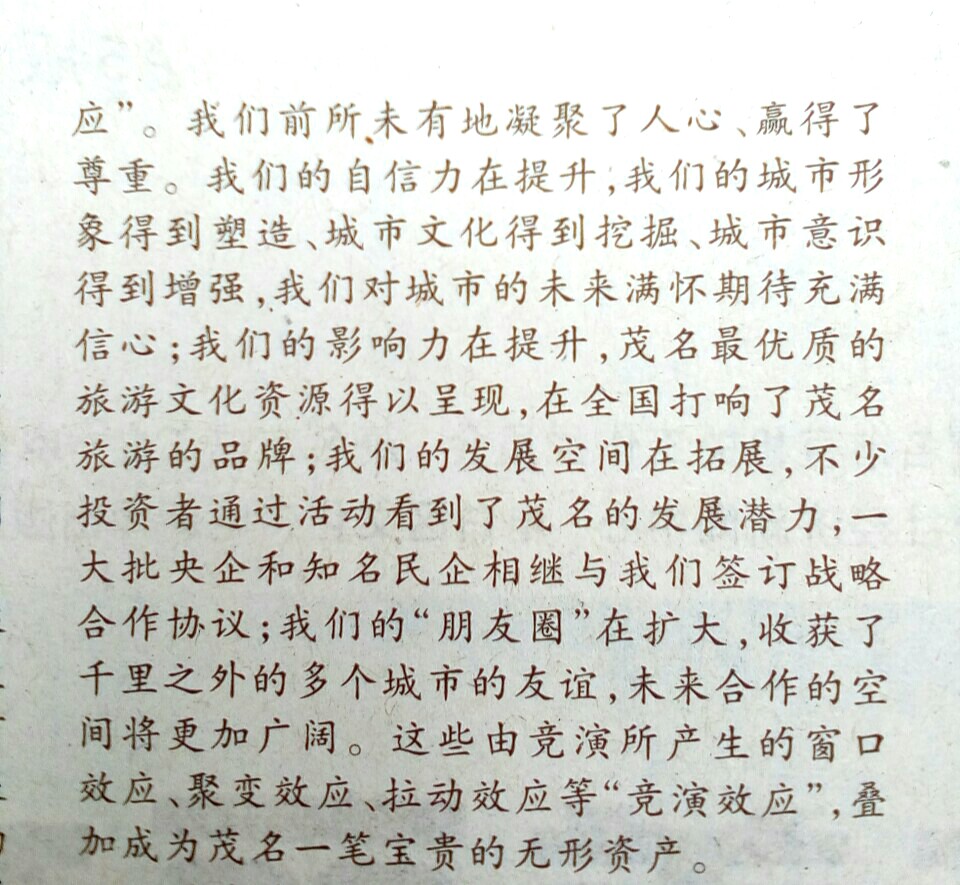 应”。我们前所未有地凝聚了人心、赢得了
尊重。我们的自信力在提升,我们的城市形
象得到塑造、城市文化得到挖掘、城市意识
得到增强,我们对城市的未来满怀期待充满
信心;我们的影响力在提升,茂名最优质的
旅游文化资源得以呈现,在全国打响了茂名
旅游的品牌;我们的发展空间在拓展,不少
投资者通过活动看到了茂名的发展潜力,一
大批央企和知名民企相继与我们签订战略
合作协议;我们的“朋友圈”在扩大,收获了
千里之外的多个城市的友谊,未来合作的空
间将更加广阔。这些由竞演所产生的窗口
效应、聚变效应、拉动效应等“竞演效应”,叠
加成为茂名一笔宝贵的无形资产。